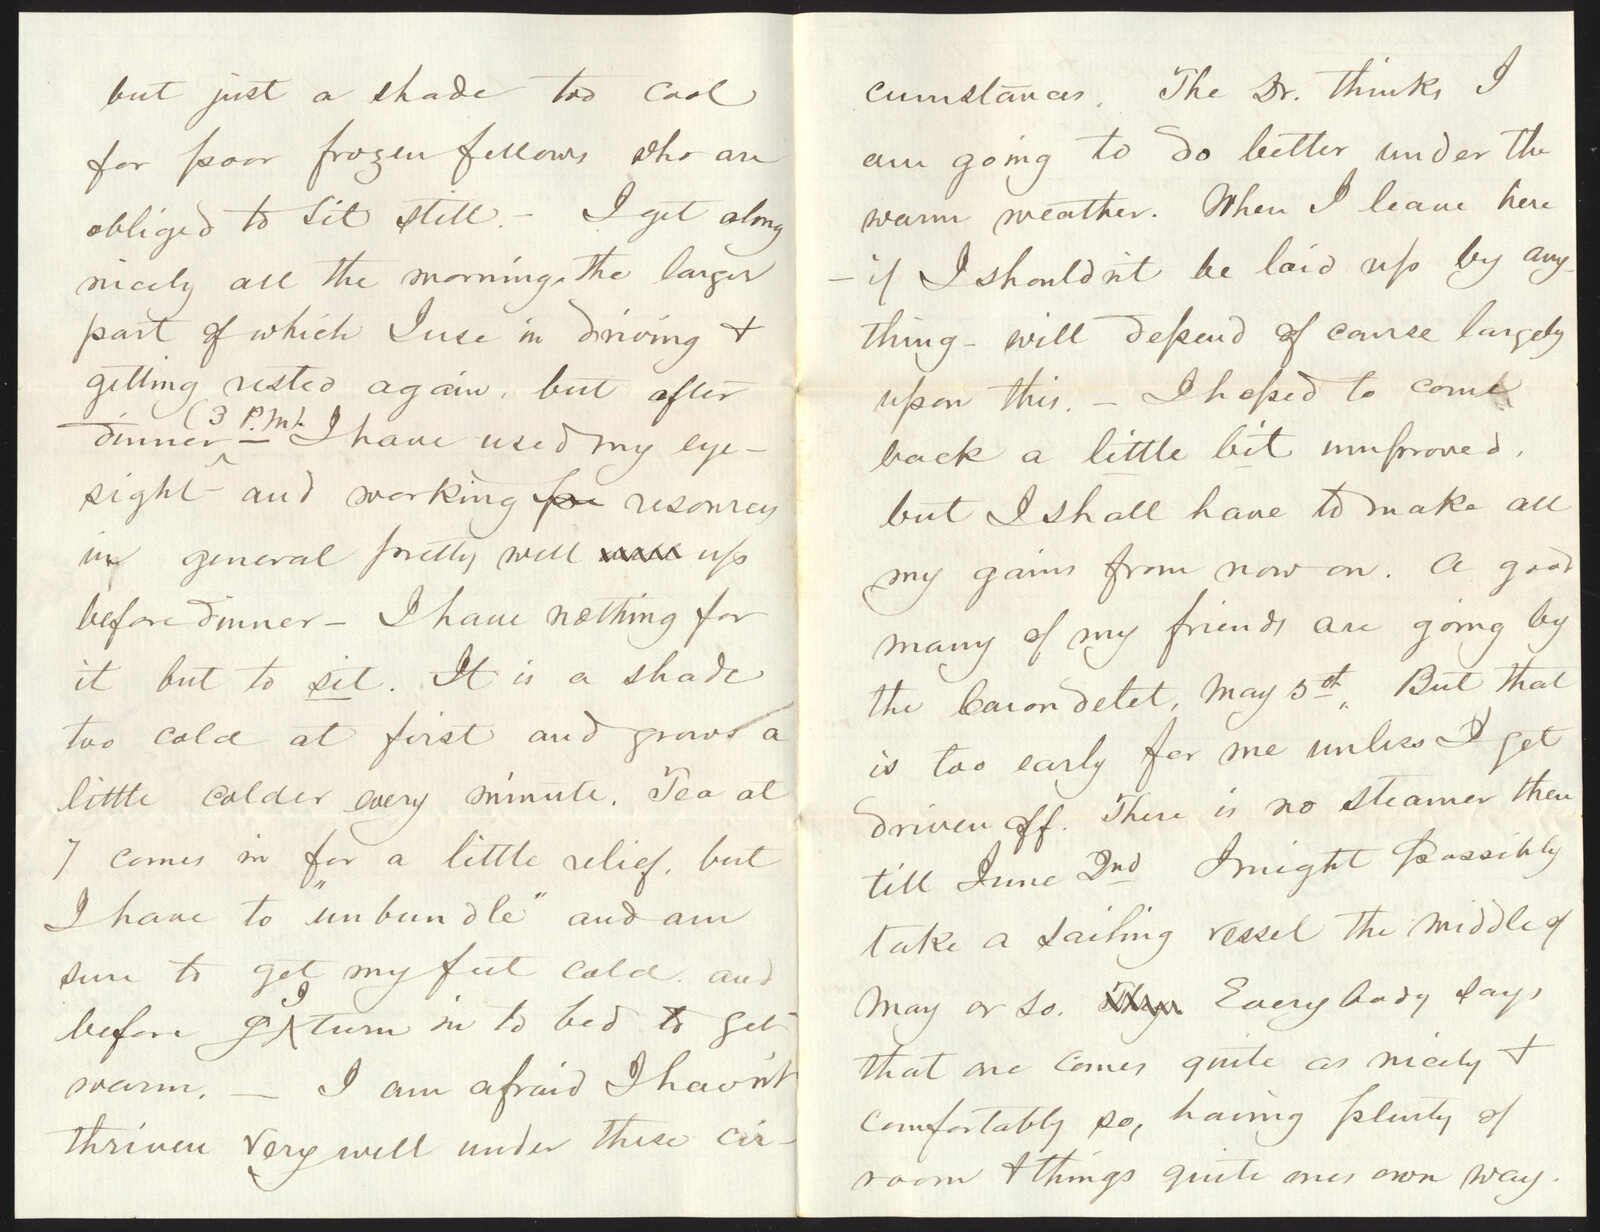 but just a shade too cool
for poor frozen fellows who are
obliged to sit still. - I get along
nicely all the morning, the larger
part of which I use in driving &
getting rested again, but after
dinner (3 P.M). - I have used my eye-
sight and working for resources
in general pretty well well up
before dinner - I have nothing for
it but to sit. It is a shade
too cold at first and grows a
little colder every minute. Tea at
7 comes in for a little relief, but
I have to "unbundle" and am
sure to get my feet cold and
before I turn in to bed to get
warm. - I am afraid I havn't
thriven very well under these cir-
cumstances. The Dr. thinks I
am going to do better under the
warm weather. When I leave here
- if I shouldn't be laid up by any-
thing - will depend of course largely
upon this. - I hoped to come
back a little bit improved,
but I shall have to make all
my gains from now on. A good
many of my friends are going by
the Carondelet, May 5th. But that
is too early for me unless I get
driven off. There is no steamer then
till June 2nd I might possibly
take a sailing vessel the middle of
May or so. Everybody says
that one comes quite as nicely &
comfortably so, having plenty of
room & things quite ones own way.